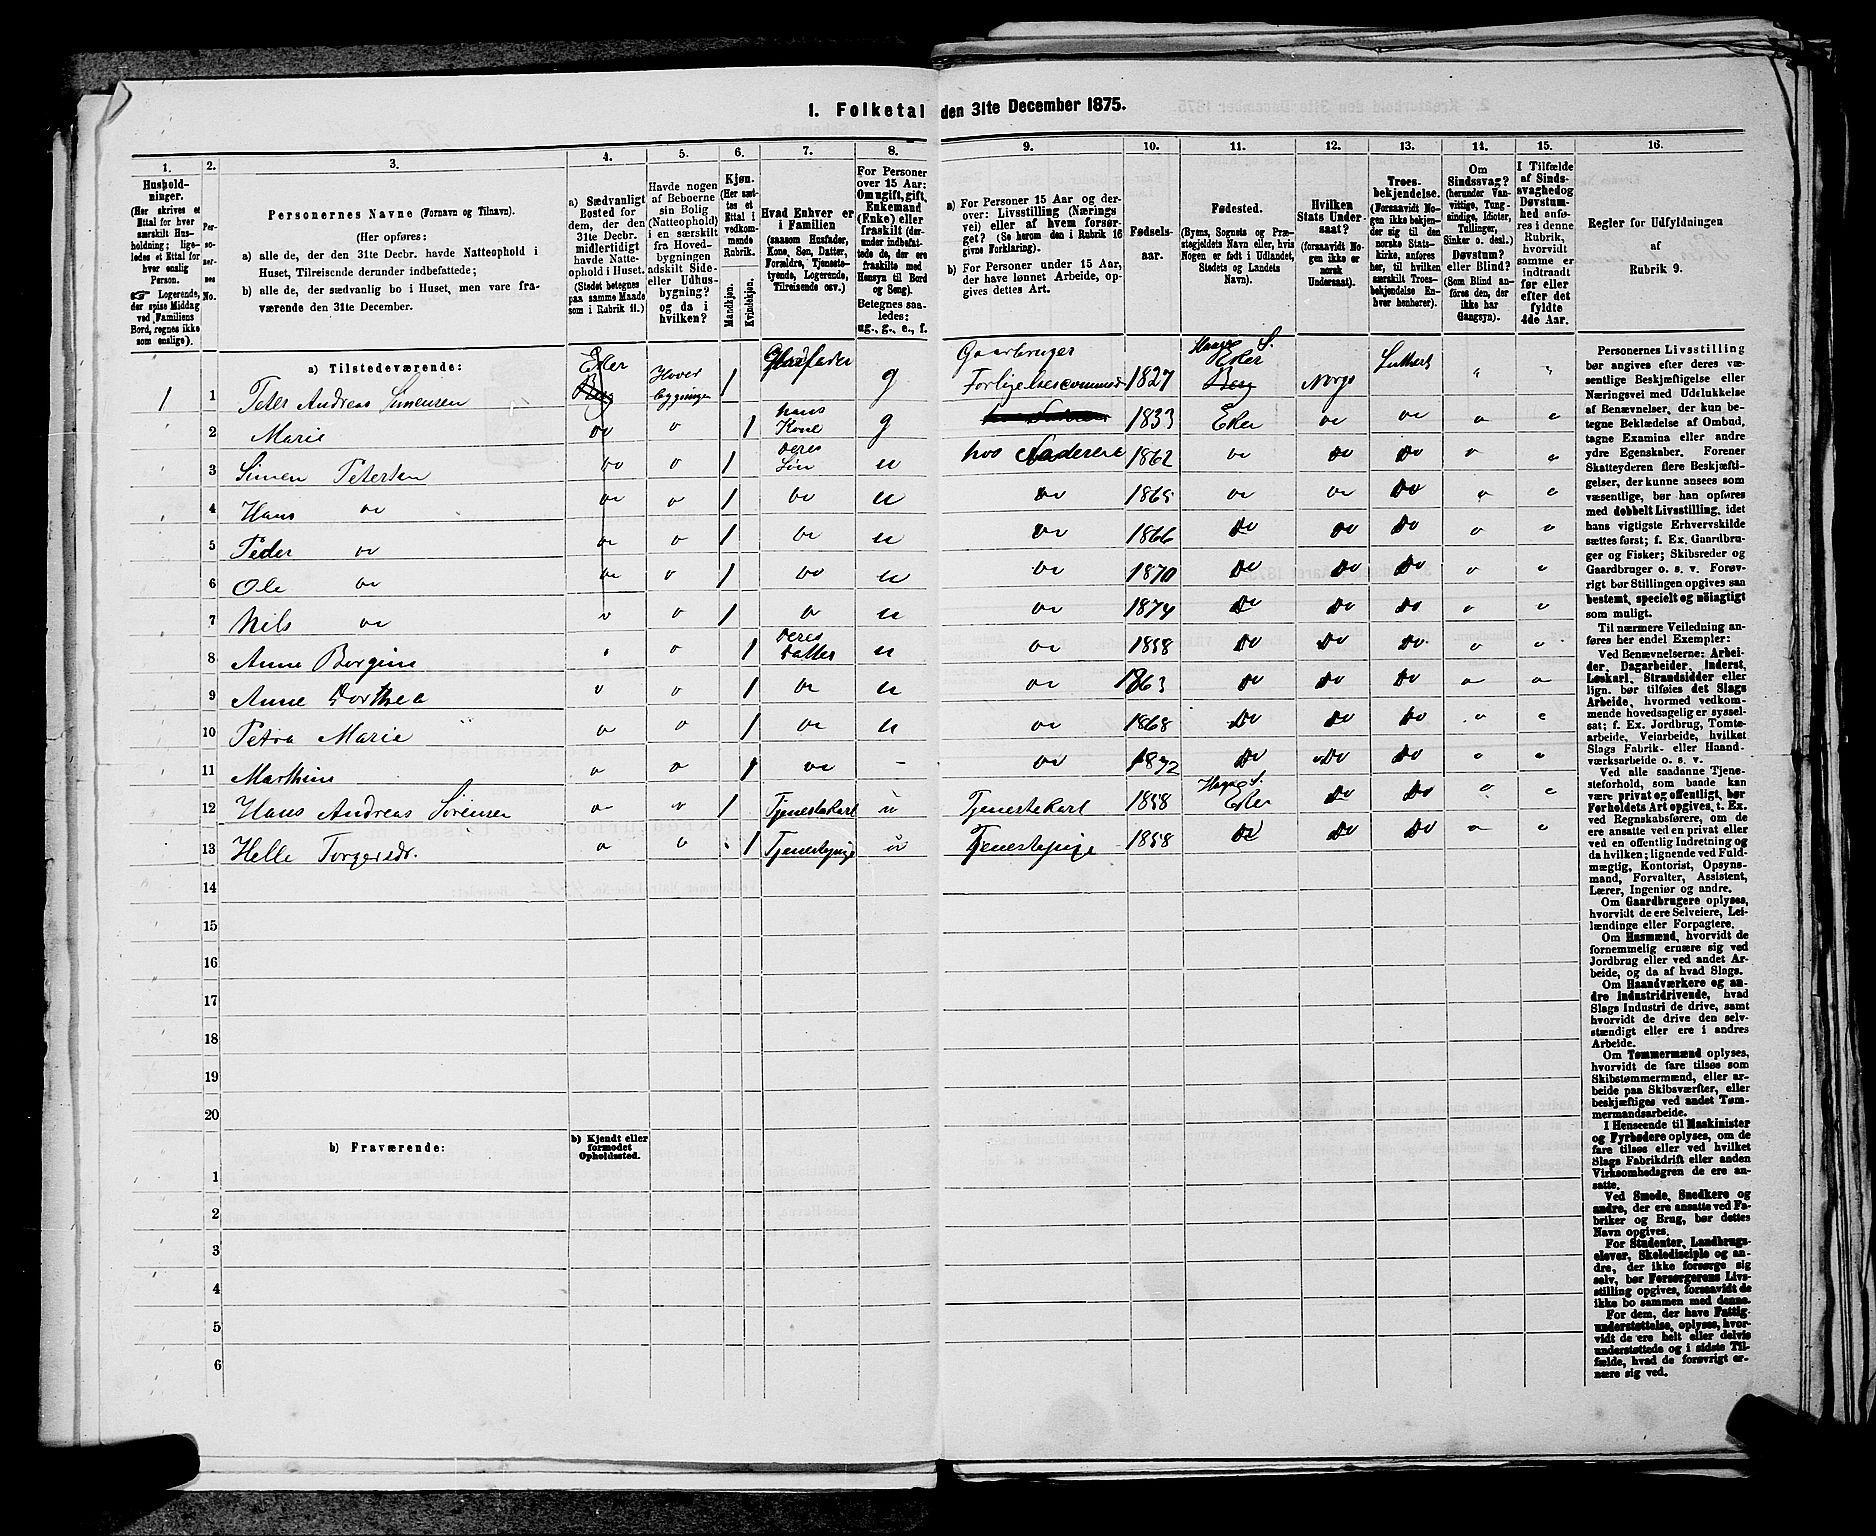 1. Folketal den 31te December 1875.
1.
2.
3.
4.
5.
6.
7.
8.
9.
10.
11.
12.
13.
14.
15.
16.
Hushold-
ninger.
(Her skrives et
Ettal for hver
særskilt Hus-
holdning; lige-
ledes et Ettal for
hver enslig
Person.
☞ Logerende,
der spise Middag
ved Familiens
Bord, regnes ikke
som enslige).
Per-
so-
ner-
nes
No.
Personernes Navne (Fornavn og Tilnavn).
(Her opføres:
a) alle de, der den 31te Decbr. havde Natteophold i
Huset, Tilreisende derunder indbefattede;
b) alle de, der sædvanlig bo i Huset, men vare fra-
værende den 31te December.
a) Sædvanligt
Bosted for
dem, der den
31te Decbr.
midlertidigt
havde Natte-
ophold i Huset.
(Stedet betegnes
paa samme Maade
som i Rubrik 11.)
Havde nogen
af Beboerne
sin Bolig
(Natteophold)
i en særskilt
fra Hoved-
bygningen
adskilt Side-
eller Udhus-
bygning?
og da i
hvilken?
Kjøn.
(Her sæt-
tes et
Ettal i
vedkom-
mende
Rubrik.
Mandkjøn.
Kvindekjøn.
Hvad Enhver er
i Familien
(saasom Husfader,
Kone, Søn, Datter,
Forældre, Tjeneste-
tyende, Logerende,
Tilreisende osv.)
For Personer
over 15 Aar:
Om ugift, gift,
Enkemand
(Enke) eller
fraskilt (der-
under indbefat-
tede de, der ere
fraskilte med
Hensyn til Bord
og Seng).
Betegnes saa-
ledes:
ug., g., e., f.
a) For Personer 15 Aar og der-
over: Livsstilling (Nærings
vei) eller af hvem forsør-
get? (Se herom den i Rubrik 16
givne Forklaring).
b) For Personer under 15 Aar,
der have lønnet Arbeide, op-
gives dettes Art.
Fødsels-
aar.
Fødested.
(Byens, Sognets og Præ-
stegjeldets Navn eller, hvis
Nogen er født i Udlandet,
Stedets og Landets
Navn).
Hvilken
Stats Under-
saat?
(forsaavidt No-
gen ikke er
norsk
Undersaat).
Troes-
bekjendelse.
(Forsaavidt No-
gen ikke bekjen-
der sig til den
norske Stats-
kirke, anføres
her, til hvilken
særskilt Troes-
bekjendelse En-
hver henhører).
Om
Sindssvag?
(herunder Van-
vittige, Tung-
sindige, Idioter,
Tullinger,
Sinker o. desl.)
Døvstum?
eller Blind?
(Som Blind an-
føres den, der
ikke har
Gangsyn).
I Tilfælde
af Sinds-
svaghed og
Døvstum-
hed anfø-
res i denne
Rubrik,
hvorvidt
samme er
indtraadt
før eller
efter det
fyldte
4de Aar.
Regler for Udfyldningen
af
Rubrik 9.
a) Tilstedeværende:
1 1 Peter Andreas Simensen Eker Hover bygningen 1 Husfader g Gaardbruger 1827 Eker Norge Luthersk " "
2 Marie do o 1 hans Kone g 1833 Eker do do o o
3 Simen Petersen do o 1 deres Søn u hos Faderen 1862 do Do Do o o
4 Hans do do o 1 do u do 1865 do do Do o o
5 Peder do do o 1 do u do 1866 Do Do Do o o
6 Ole do do o 1 do u do 1870 Do Do Do o o
7 Nils do o o 1 o u do 1874 Do Do Do o o
8 Anne Borgine o 1 deres Datter u do 1858 Do Do Do o o
9 Anne Dorthea o o 1 do u do 1863 Do Do Do o o
10 Petra Marie o o 1 do u do 1868 Do Do Do o o
11 Marthine o o 1 do - do 1872 Do Do Do o o
12 Hans Andreas Sørensen o o 1 Tjenestekarl u Tjenestekarl 1858 Eker Do Do o o
13 Helle Torgersdr. o o 1 Tjenestepige u Tjenestepige 1858 Do Do Do o o
14
15
16
17
18
19
20
b) Fraværende:
b) Kjendt eller
formodet
Opholdssted.
1
2
3
4
5
6
Personernes Livsstilling
bør angives efter deres væ-
sentlige Beskjæftigelse eller
Næringsvei med Udelukkelse
af Benævnelser, der kun be-
tegne Beklædelse af Ombud,
tagne Examina eller andre
ydre Egenskaber. Forener
Skatteyderen flere Beskjæfti-
gelser, der kunne ansees som
væsentlige, bør han opføres
med dobbelt Livsstilling, idet
hans vigtigste Erhvervskilde
sættes først; f. Ex. Gaardbru-
ger og Fisker; Skibsreder og
Gaardbruger o. s. v. Forøv-
rigt bør Stillingen opgives saa
bestemt, specielt og nöiagtigt
som muligt.
Til nærmere Veiledning an-
føres her endel Exempler:
Ved Benævnelserne: Arbei-
der, Dagarbeider, Inderst,
Løskarl, Strandsidder eller
lign. bør tilføies det Slags
Arbeide, hvormed vedkom-
mende hovedsagelig er syssel-
sat; f. Ex. Jordbrug, Tomte-
arbeide, Veiarbeide, hvilket
Slags Fabrik- eller Haand-
værksarbeide o. s. v.
Ved alle saadanne Tjene-
steforhold, som baade kan
være privat og offentligt, bør
Forholdets Art opgives, t. Ex.
ved Regnskabsførere, om de
ere ansatte ved en privat eller
ved en offentlig Indretning og
da hvilken; lignende ved Fuld-
mægtig, Kontorist, Opsyns-
mand, Forvalter, Assistent,
Lærer, Ingeniør og andre.
Om Gaardbrugere oplyses,
hvorvidt de ere Selveiere, Lei-
lændinge eller Forpagtere.
Om Husmænd, hvorvidt de
fornemmelig ernære sig ved
Jordbrug eller ved andet Ar-
beide, og da af hvad Slags.
Om Haandværkere og an-
dre Industridrivende, hvad
Slags Industri de drive, samt
hvorvidt de drive den selv-
stændigt eller ere i andres
Arbeide.
Om Tømmermænd oplyses,
hvorvidt de fare tilsøs som
Skibstømmermænd, eller ar-
beide paa Skibsværfter, eller
beskjæftiges ved andet Tøm-
mermandsarbeide.
I Henseende til Maskinister
og Fyrbødere oplyses, om de
fare tilsøs eller ved hvilket
Slags Fabrikdrift eller anden
Virksomhedsgren de ere an-
satte.
Ved Smede, Snedkere og
andre, der ere ansatte ved Fa-
briker og Brug, bør dettes
Navn opgives.
For Studenter, Landbrugs-
elever, Skoledisciple og an-
dre, der ikke forsørge sig
selv, bør Forsørgerens Livs-
stilling opgives, forsaavidt de
ikke bo sammen med denne.
For dem, der have Fattig-
understøttelse, oplyses, hvor-
vidt de ere helt eller delvis
understøttede og i sidste Til-
fælde, hvad de forøvrigt er-
nære sig ved.